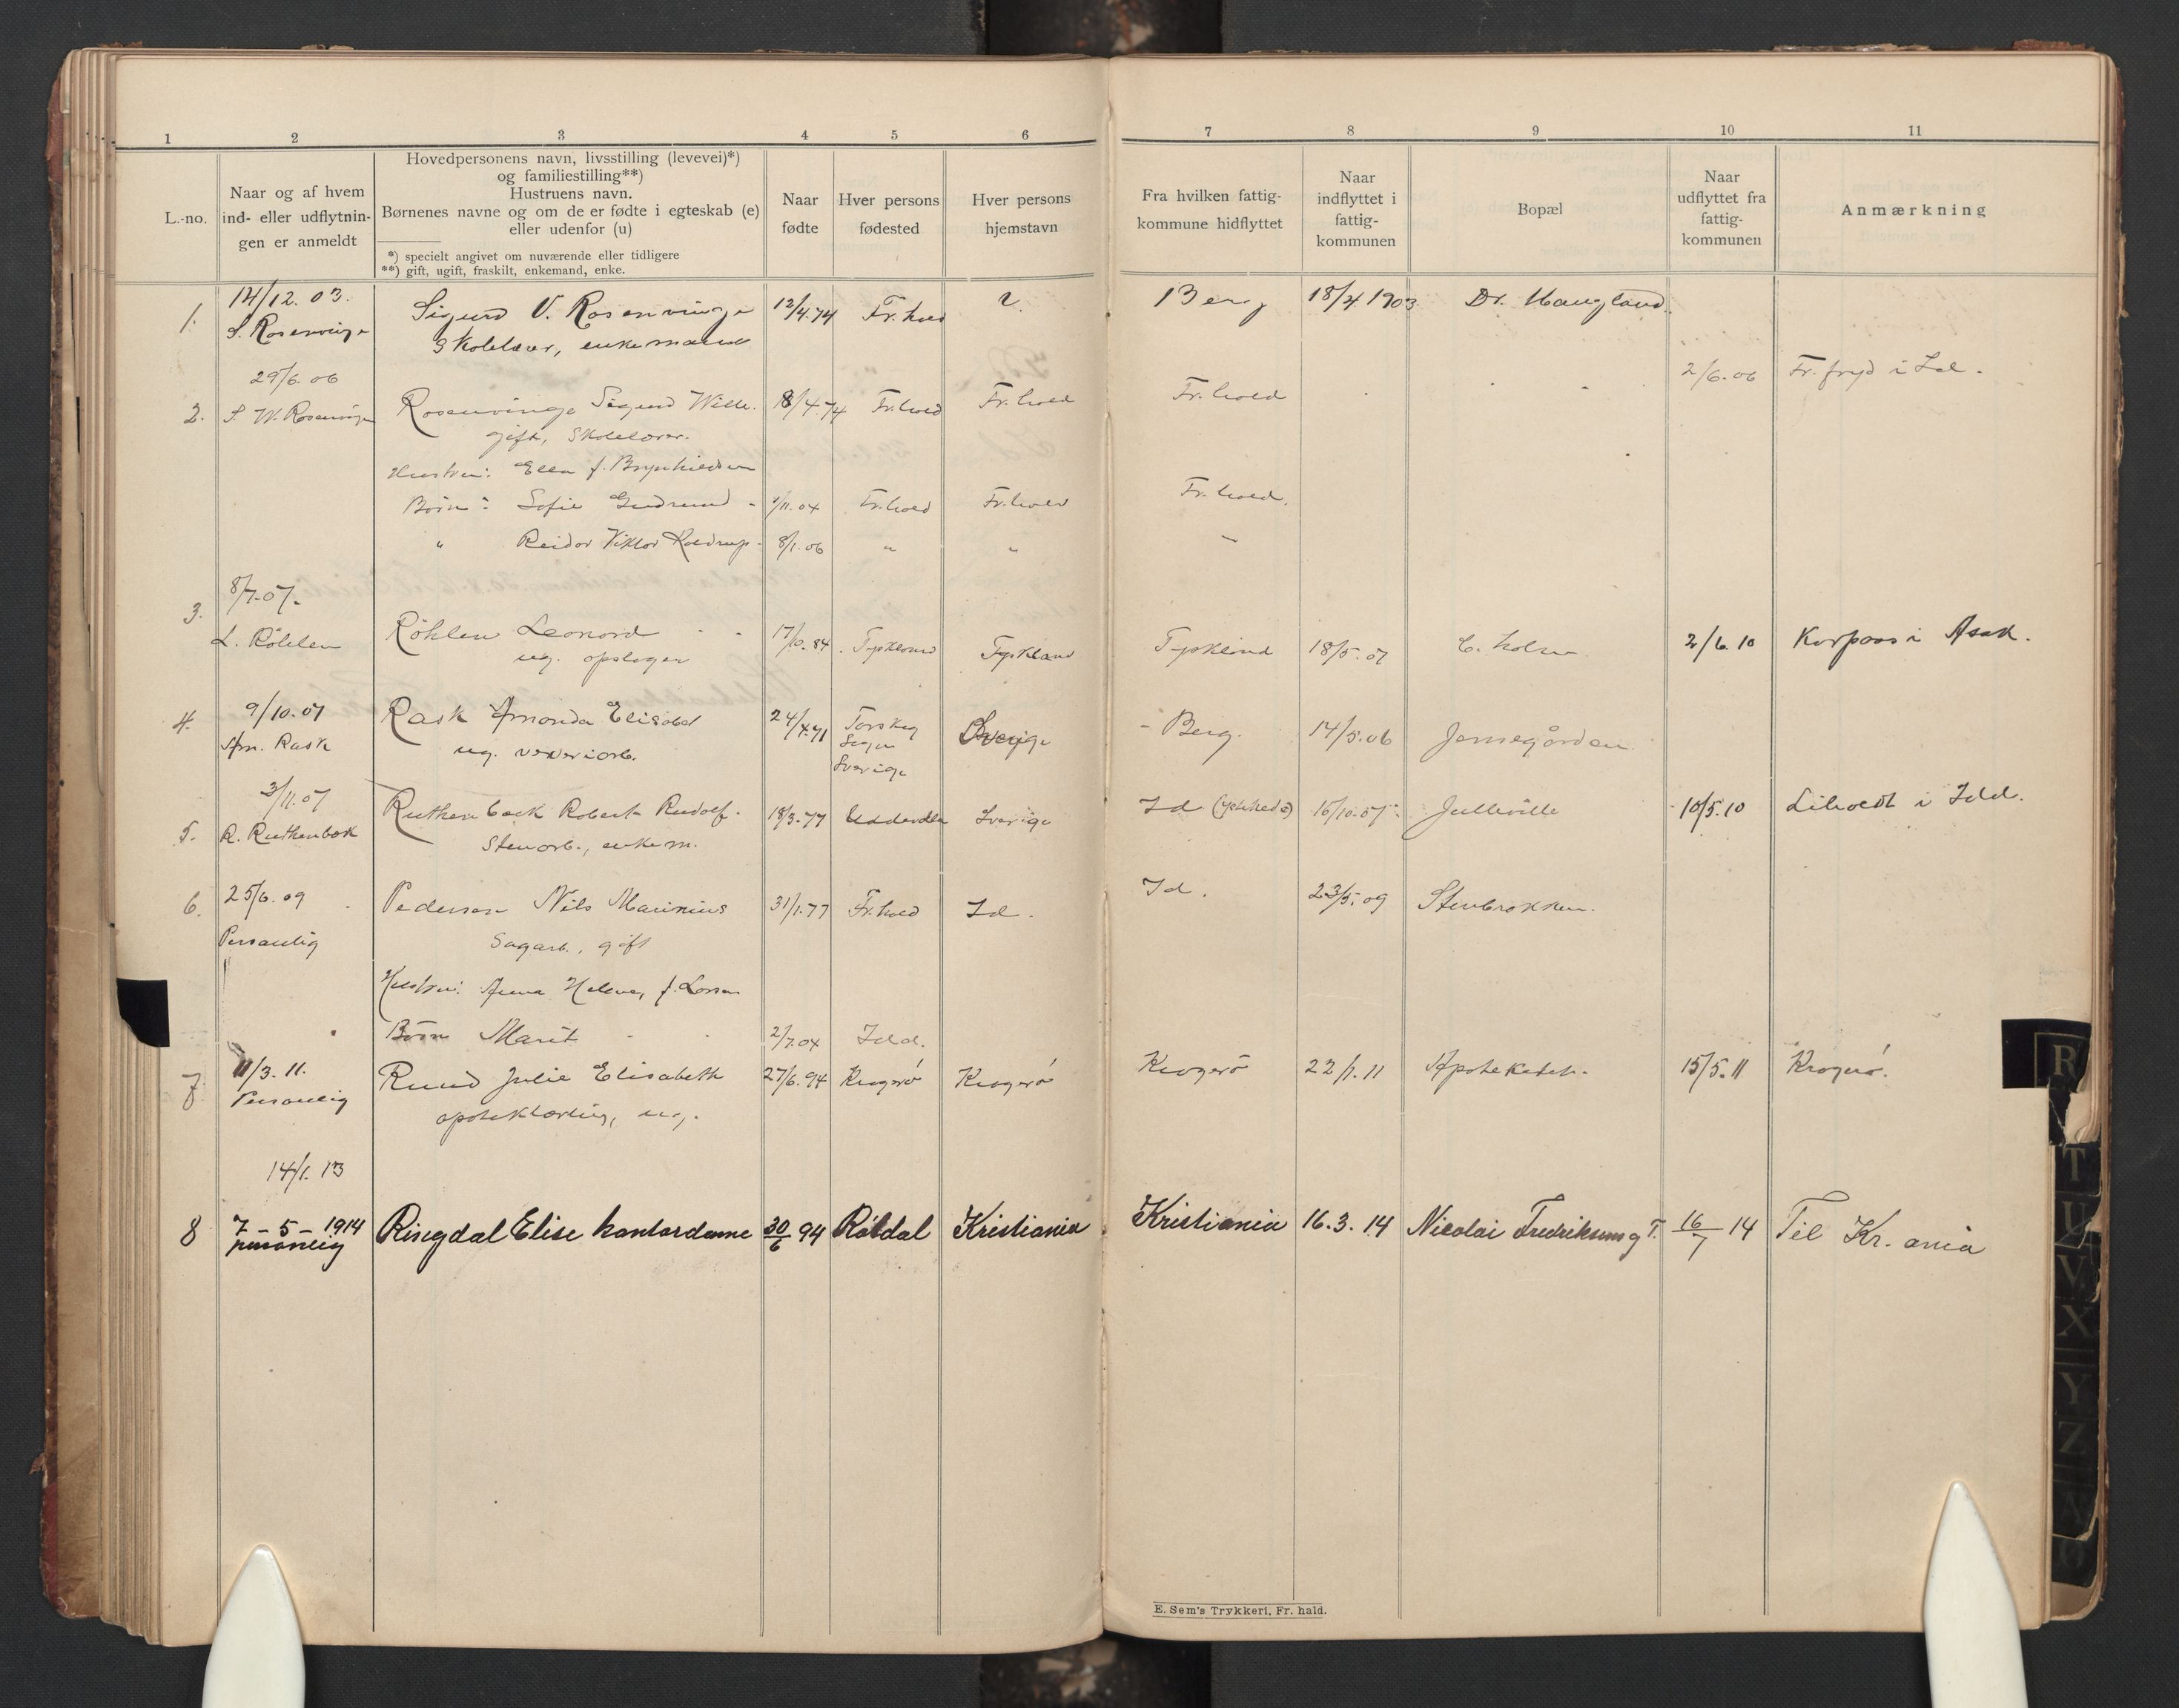 1 2 3 4 5 6 7 8 9 10 11
L.-no.
Naar og af hvem
ind- eller udflytnin-
gen er anmeldt
Hovedpersonens navn, livsstilling (levevei)*)
og familiestilling**)
Hustruens navn.
Børnenes navne og om de er fødte i egteskab (e)
eller udenfor (u)
*) specielt angivet om nuværende eller tidligere
**) gift, ugift, fraskilt, enkemand, enke.
Naar
fødte
Hver persons
fødested
Hver persons
hjemstavn
Fra hvilken fattig-
kommune hidflyttet
Naar
indflyttet i
fattig-
kommunen
Bopæl
Naar
udflyttet fra
fattig-
kommunen
Anmærkning
1. 14/12.03. Sigurd V. Rosenvinge 12/4.74 Fr.hald Berg 18/4 1903 Dr. Haugland.
S. Rosenvinge Skolelærer, enkemand
29/6.06 2/6.06 Fr.fryd i Id.
2. S. W. Rosenvinge Rosenvinge Sigurd Wilh. 18/4.74 Fr.hald Fr.hald Fr.hald
gift, Skolelærer.
Hustru: Ella f. Brynhildsen
Børn: Sofie Gudrund 1/11.04 Fr.hald Fr.hald Fr.hald.
" Reidar Viktor 8/1.06 " "
3. 8/7.07.
L. Röhlen Röhlen Leonard 17/10.84 Tyskland Tyskland Tyskland 18/5.07 C. holm 2/6.10 Korpaas i Asak.
ug. opslager
4. 9/10.07 Rask Amanda Elisabet 24/4.71 Torskog Sverige Berg. 14/5.06 Jernegården
Am. Rask ug. væveriarb. Sverige
5. 3/11.07 Ruthenbeck Robert Rudolf. 18/3.77 Uddevalla Sverige Id 15/10.07 Julleville 10/5.10 Liholdt i Idd.
R. Ruthenbæk Stenarb., enkem.
6. 25/6.09 Pedersen Nils Marinius 31/1.77 Fr.hald Id. Id. 23/5.09 Stenbrækken.
Personlig Sagarb., gift
Hustru: Anna Helene, f. Larsen
Børn Marit 2/7.04 Idd.
7 11/3.11. Ruud Julie Elisabeth 27/6.94 Kragerø Kragerø Kragerø 22/1.11 Apotheket. 15/5.11 Kragerø.
Personlig apoteklærling, ug.
14/1.13
8 7-5-1914 Ringdal Elise kontordame 30/6 94 Röldal Kristiania Kristiania 16.3.14 Nicolai Fredriksens g T. 16/7 14 Til Kr.ania
personlig
E. Sem's Trykkeri, Fr. hald.
R
T
U
V
X
Y
Z